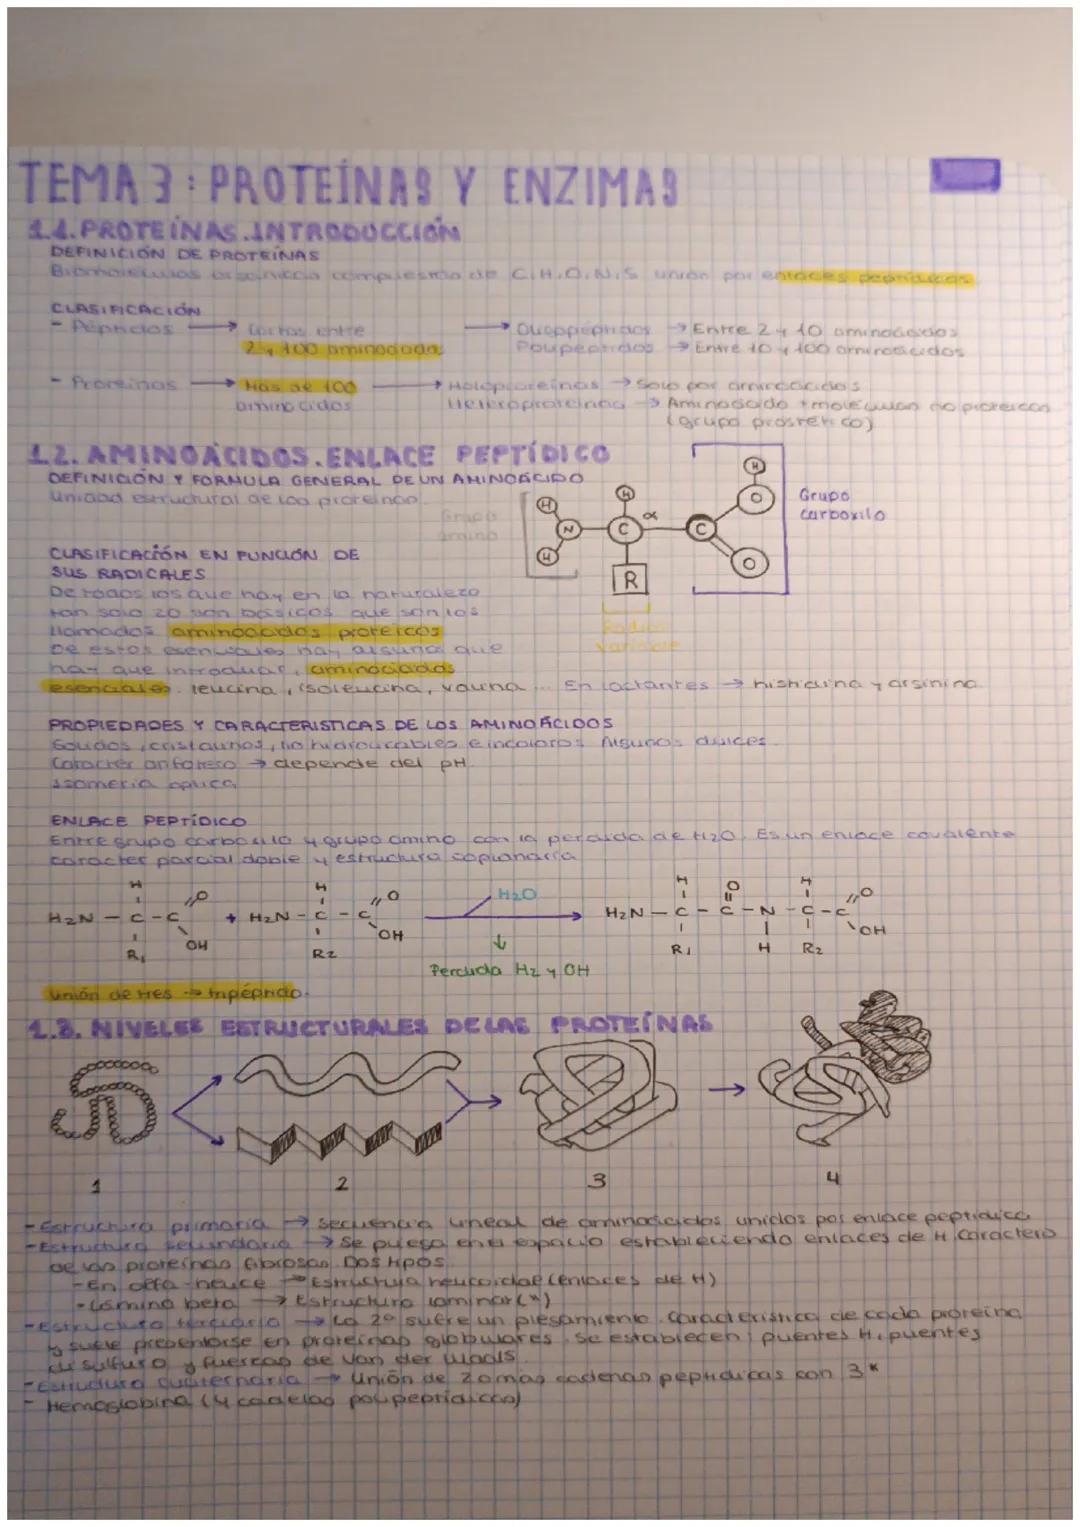 TEMA 3: PROTEÍNAS Y ENZIMAS
1.1. PROTEÍNAS. INTRODUCCIÓN
DEFINICIÓN DE PROTEÍNAS
Biomoléculas orgánicas compuestas de C, H, O, N, S unión por enlaces peptídicos
CLASIFICACIÓN
- Péptidos → Cortas entre 2 y 100 aminoácidos
→ Oligopéptidos → Entre 2 y 10 aminoácidos
Polipéptidos → Entre 10 y 100 aminoácidos
- Proteínas → Más de 100 aminoácidos
→ Holoproteínas → Solo por aminoácidos
Heteroproteínas → Aminoácido + moléculas no proteicas
(grupo prostético)
1.2. AMINOÁCIDOS. ENLACE PEPTÍDICO
DEFINICIÓN Y FORMULA GENERAL DE UN AMINOÁCIDO
Unidad estructural de las proteínas.
Grupo amino
H
H
N
H
C
α
C
H
O
O
R
Grupo carboxilo
Radical variable
CLASIFICACIÓN EN FUNCIÓN DE
SUS RADICALES
De todos los que hay en la naturaleza
tan solo 20 son básicos que son los
llamados aminoácidos proteicos
De estos esenciales hay alguno que
hay que introducir, aminoácidos
esenciales. leucina, isoleucina, valina... En lactantes → histidina y arginina
PROPIEDADES Y CARACTERISTICAS DE LOS AMINOÁCIDOS
Solidos, cristalinos, no hidrolizables e incoloros. Algunos dulces
Carácter anfótero → depende del pH
Isomeria optica
ENLACE PEPTÍDICO
Entre grupo carboxilo y grupo amino con la perdida de H2O. Es un enlace covalente
caracter parcial doble y estructura coplanaria
H H H O H
H2N - C - C O OH + H2N - C - C O OH H2O → H2N - C - C - N - C - C O OH
R1 R2 R1 H R2
Perdida H2 y OH
Unión de tres → tripéptido.
1.3. NIVELES ESTRUCTURALES DE LAS PROTEÍNAS
1 2 3 4
- Estructura primaria → secuencia lineal de aminoácidos unidos por enlace peptídico
- Estructura secundaria → Se pliega en el espacio estableciendo enlaces de H. Caractero
de las proteínas fibrosas. Dos tipos
- En alfa-helice → Estructura helicoidal (enlaces de H)
- Lámina beta → Estructura laminar (*)
- Estructura terciaria → La 2º sufre un plegamiento. Caracteristica de cada proteína
y suele presentarse en proteínas globulares. Se establecen: puentes H, puentes
disulfuro y fuerzas de Van der Waals
- Estructura cuaternaria → Unión de 2 o más cadenas peptídicas con 3*
- Hemoglobina (4 cadenas polipeptídicas)